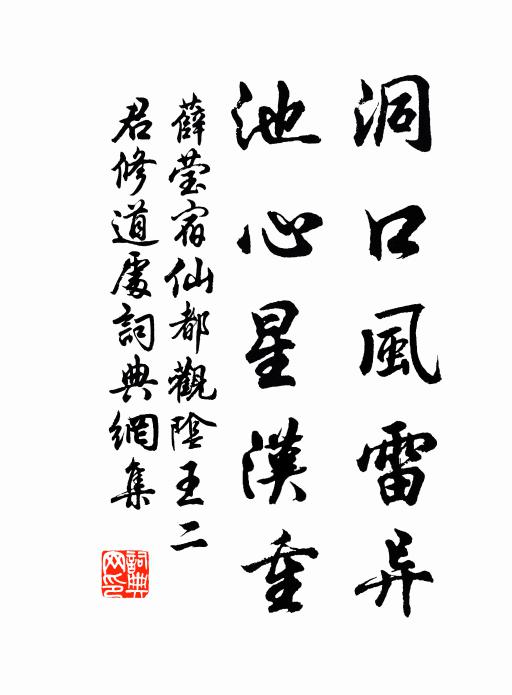 洞口風雷异
池心星漢重
薛瑩宿仙都觀陰王二
君修道處詞典網集
詞典网印